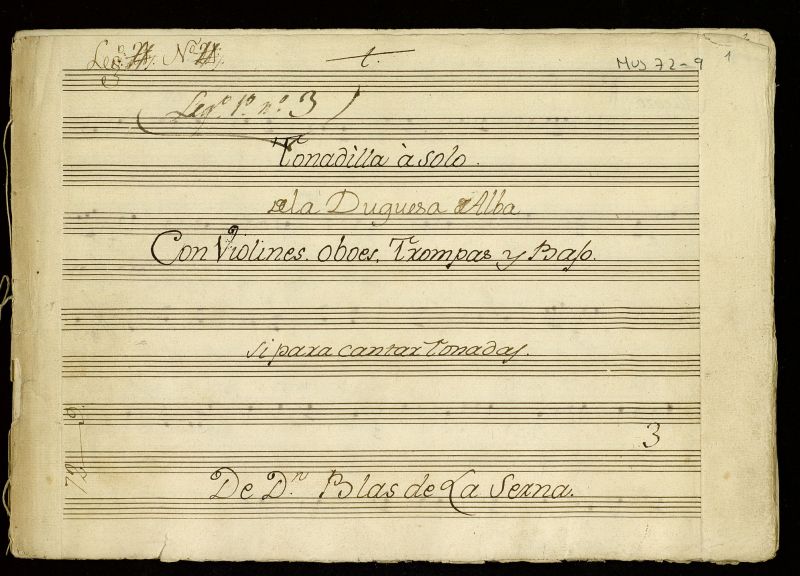 t.
Mus 72-9
1
Leg.º 1º n.º 3
Tonadilla à solo.
de la Duquesa de Alba
Con Violines. oboes. Trompas y Baſo.
Si para cantar tonadas.
3
72-9
De D.n Blas de La Serna.